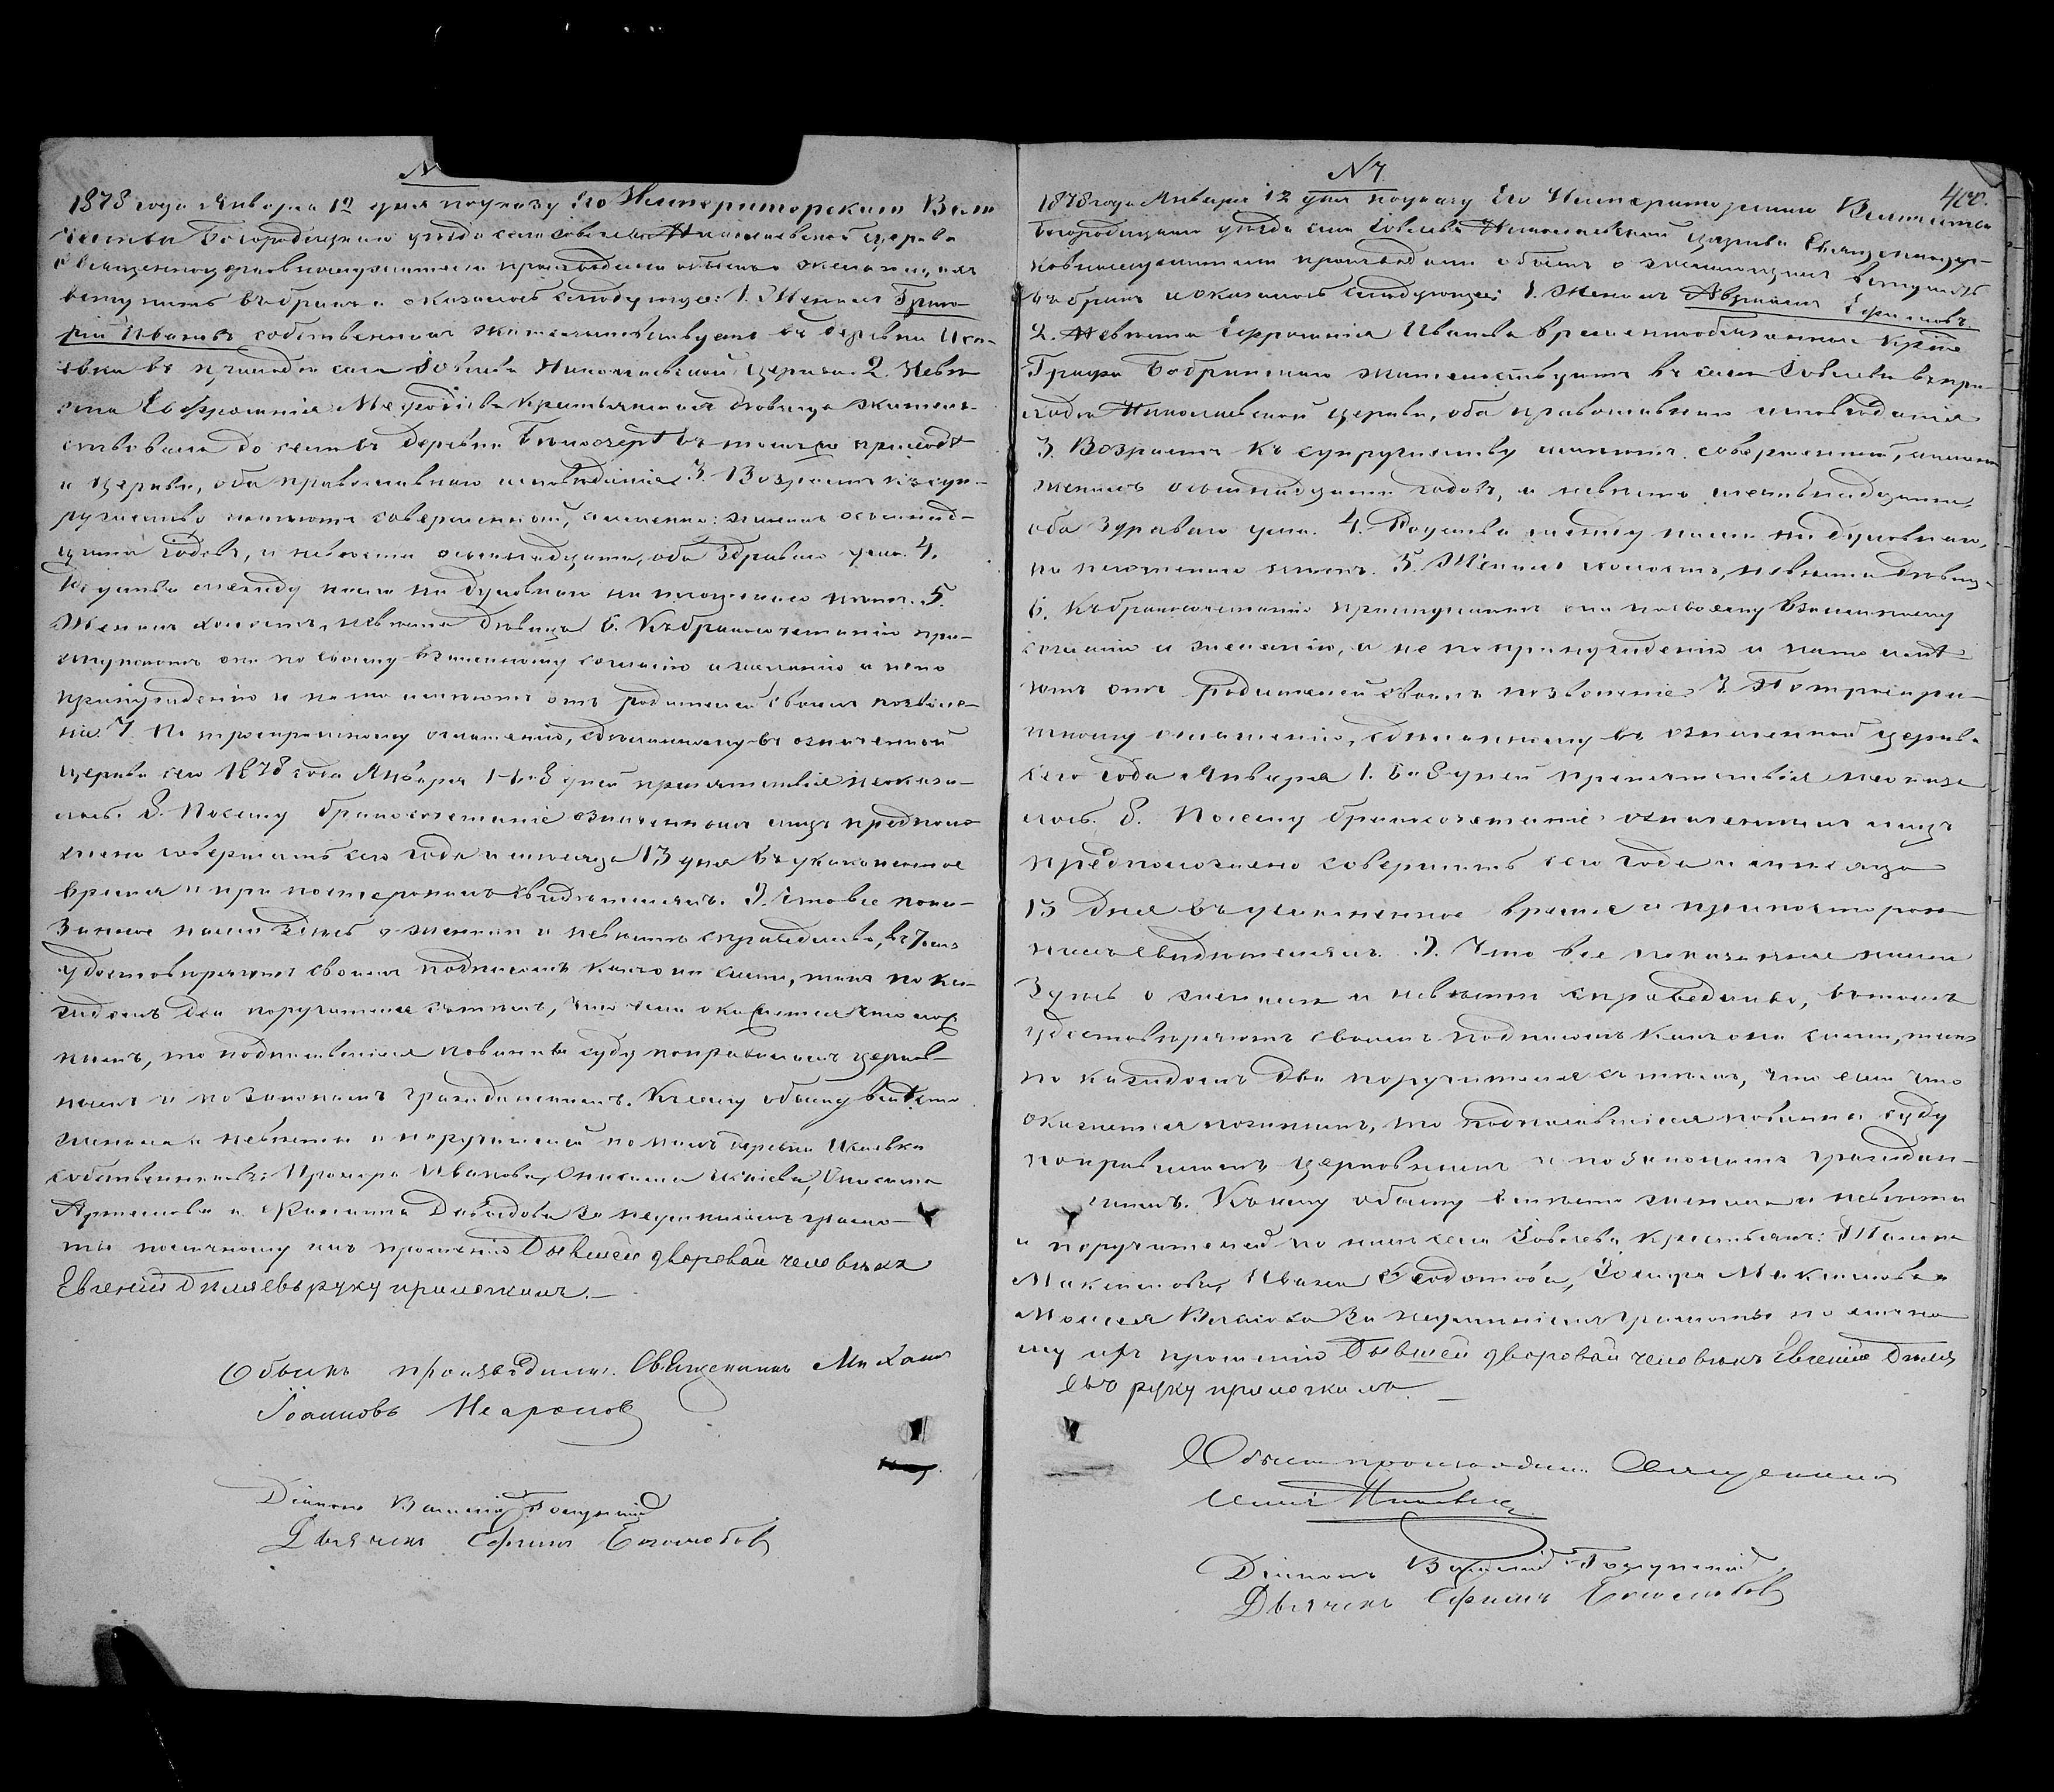 N
1878 года Января 12 дня по указу Его Императорскаго Вели
чества Богородицкаго уезда села Николаевской церкви
Священноцерковнослужители производили обыскъ о желающихъ
вступить въ бракъ и оказалось следующее: 1. Женихъ Григо
рій Ивановъ собственникъ жительствуетъ въ деревни
въ приходе села Николаевской церкви. 2. Неве
ста Евфросинія крестьянская девица житель
ствовала до селе въ деревни въ томъ же приходѣ
и церкви, оба православнаго исповеданія 3. Возрастъ къ суп
ружеству имеютъ совершенный, именно: женихъ осьмнад
цати годовъ, и невеста осьмнадцати, оба здраваго ума. 4.
Родства между ними ни духовнаго ни плотскаго нетъ. 5.
Женихъ холостъ, невеста девица 6. Къ бракосочетанію при
ступаютъ они по своему взаимному согласію и желанію а не по
принужденію и на то имеютъ отъ родителей своихъ позволе
ніе. 7. По троекратному оглашенію, сделанному въ означенной
церкви сего 1878 года Января 1. 6 и 8 дней препятствія не оказа
лось. 8. По сему бракосочетаніе означенныхъ лицъ предполо
жено совершить сего года и месяца 13 дня въ указанное
время и при постороннихъ свидетеляхъ. 9. Что все пока
занное нами здесь о женихе и невесте справедливо, въ томъ
удостоверяютъ своимъ подписомъ какъ они сами, такъ по ка
ждомъ два поручителя съ темъ, что если окажется что лож
нымъ, то подписавшіеся повинны суду по правиламъ церков
нымъ и по законамъ гражданскимъ. Къ сему обыску вместо
жениха и невесты и поручителей по нихъ деревни
собственниковъ: Прохора Иванова, Онисима Онисима
и Давыдова за неуменіемъ грамо
ты по личному ихъ прошенію бывшей дворовай человекъ
Евгеній руку приложилъ.
Обыскъ производили: Священникъ Михаилъ
Іоанновъ
Діаконъ Василій
Дьячекъ Ефимъ Боголюбов
N 7
400.
1878 года Января 12 дня по указу Его Императорскаго Величества
Богородицкаго уезда села Николаевской церкви Священноцер
ковнослужители производили обыскъ о желающихъ вступить
въ бракъ и оказалось следующее: 1. Женихъ Ефимовъ
2. Невеста Ефросинія Иванова временнообязанная крест
Графа Бобринскаго жительствуютъ въ селе въ при
ходе Николаевской церкви, оба православнаго исповеданія
3. Возрастъ къ супружеству имеютъ совершенный, именно
женихъ осьмнадцати годовъ, и невеста шестьнадцати,
оба здраваго ума. 4. Родства между ними ни духовнаго,
ни плотскаго нетъ. 5. Женихъ холостъ, невеста девица
6. Къ бракосочетанію приступаютъ они по своему взаимному
согласію и желанію, а не по принужденію и на то име
ютъ отъ родителей своихъ позволеніе 7. По троекра
тному оглашенію, сделанному въ означенной церкви
сего года Января 1. 6 и 8 дней препятствія не оказа
лось. 8. По сему бракосочетаніе означенныхъ лицъ
предположено совершить сего года и месяца
13 дня въ указанное время и при посторон
нихъ свидетеляхъ. 9. Что все показанное нами
здесь о женихе и невесте справедливо, въ томъ
удостоверяютъ своимъ подписомъ какъ они сами, такъ
по каждомъ два поручителя съ темъ, что если что
окажется ложнымъ, то подписавшіеся повинны суду
по правиламъ церковнымъ и по законамъ граждан
скимъ. Къ сему обыску вместо жениха и невесты
и поручителей по нихъ села крестьянъ:
Максимова, Ивана Федотова, Максимова и
Моисея за неуменіемъ грамоты по лично
му ихъ прошенію бывшей дворовай человекъ Евгеній
руку приложилъ.
Обыскъ производили: Священникъ
Діаконъ Василій
Дьячекъ Ефимъ Боголюбов